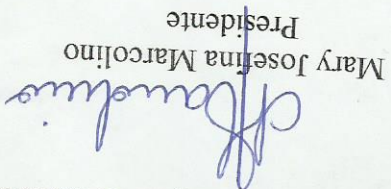 Mary Josefina Marcolino
Presidente